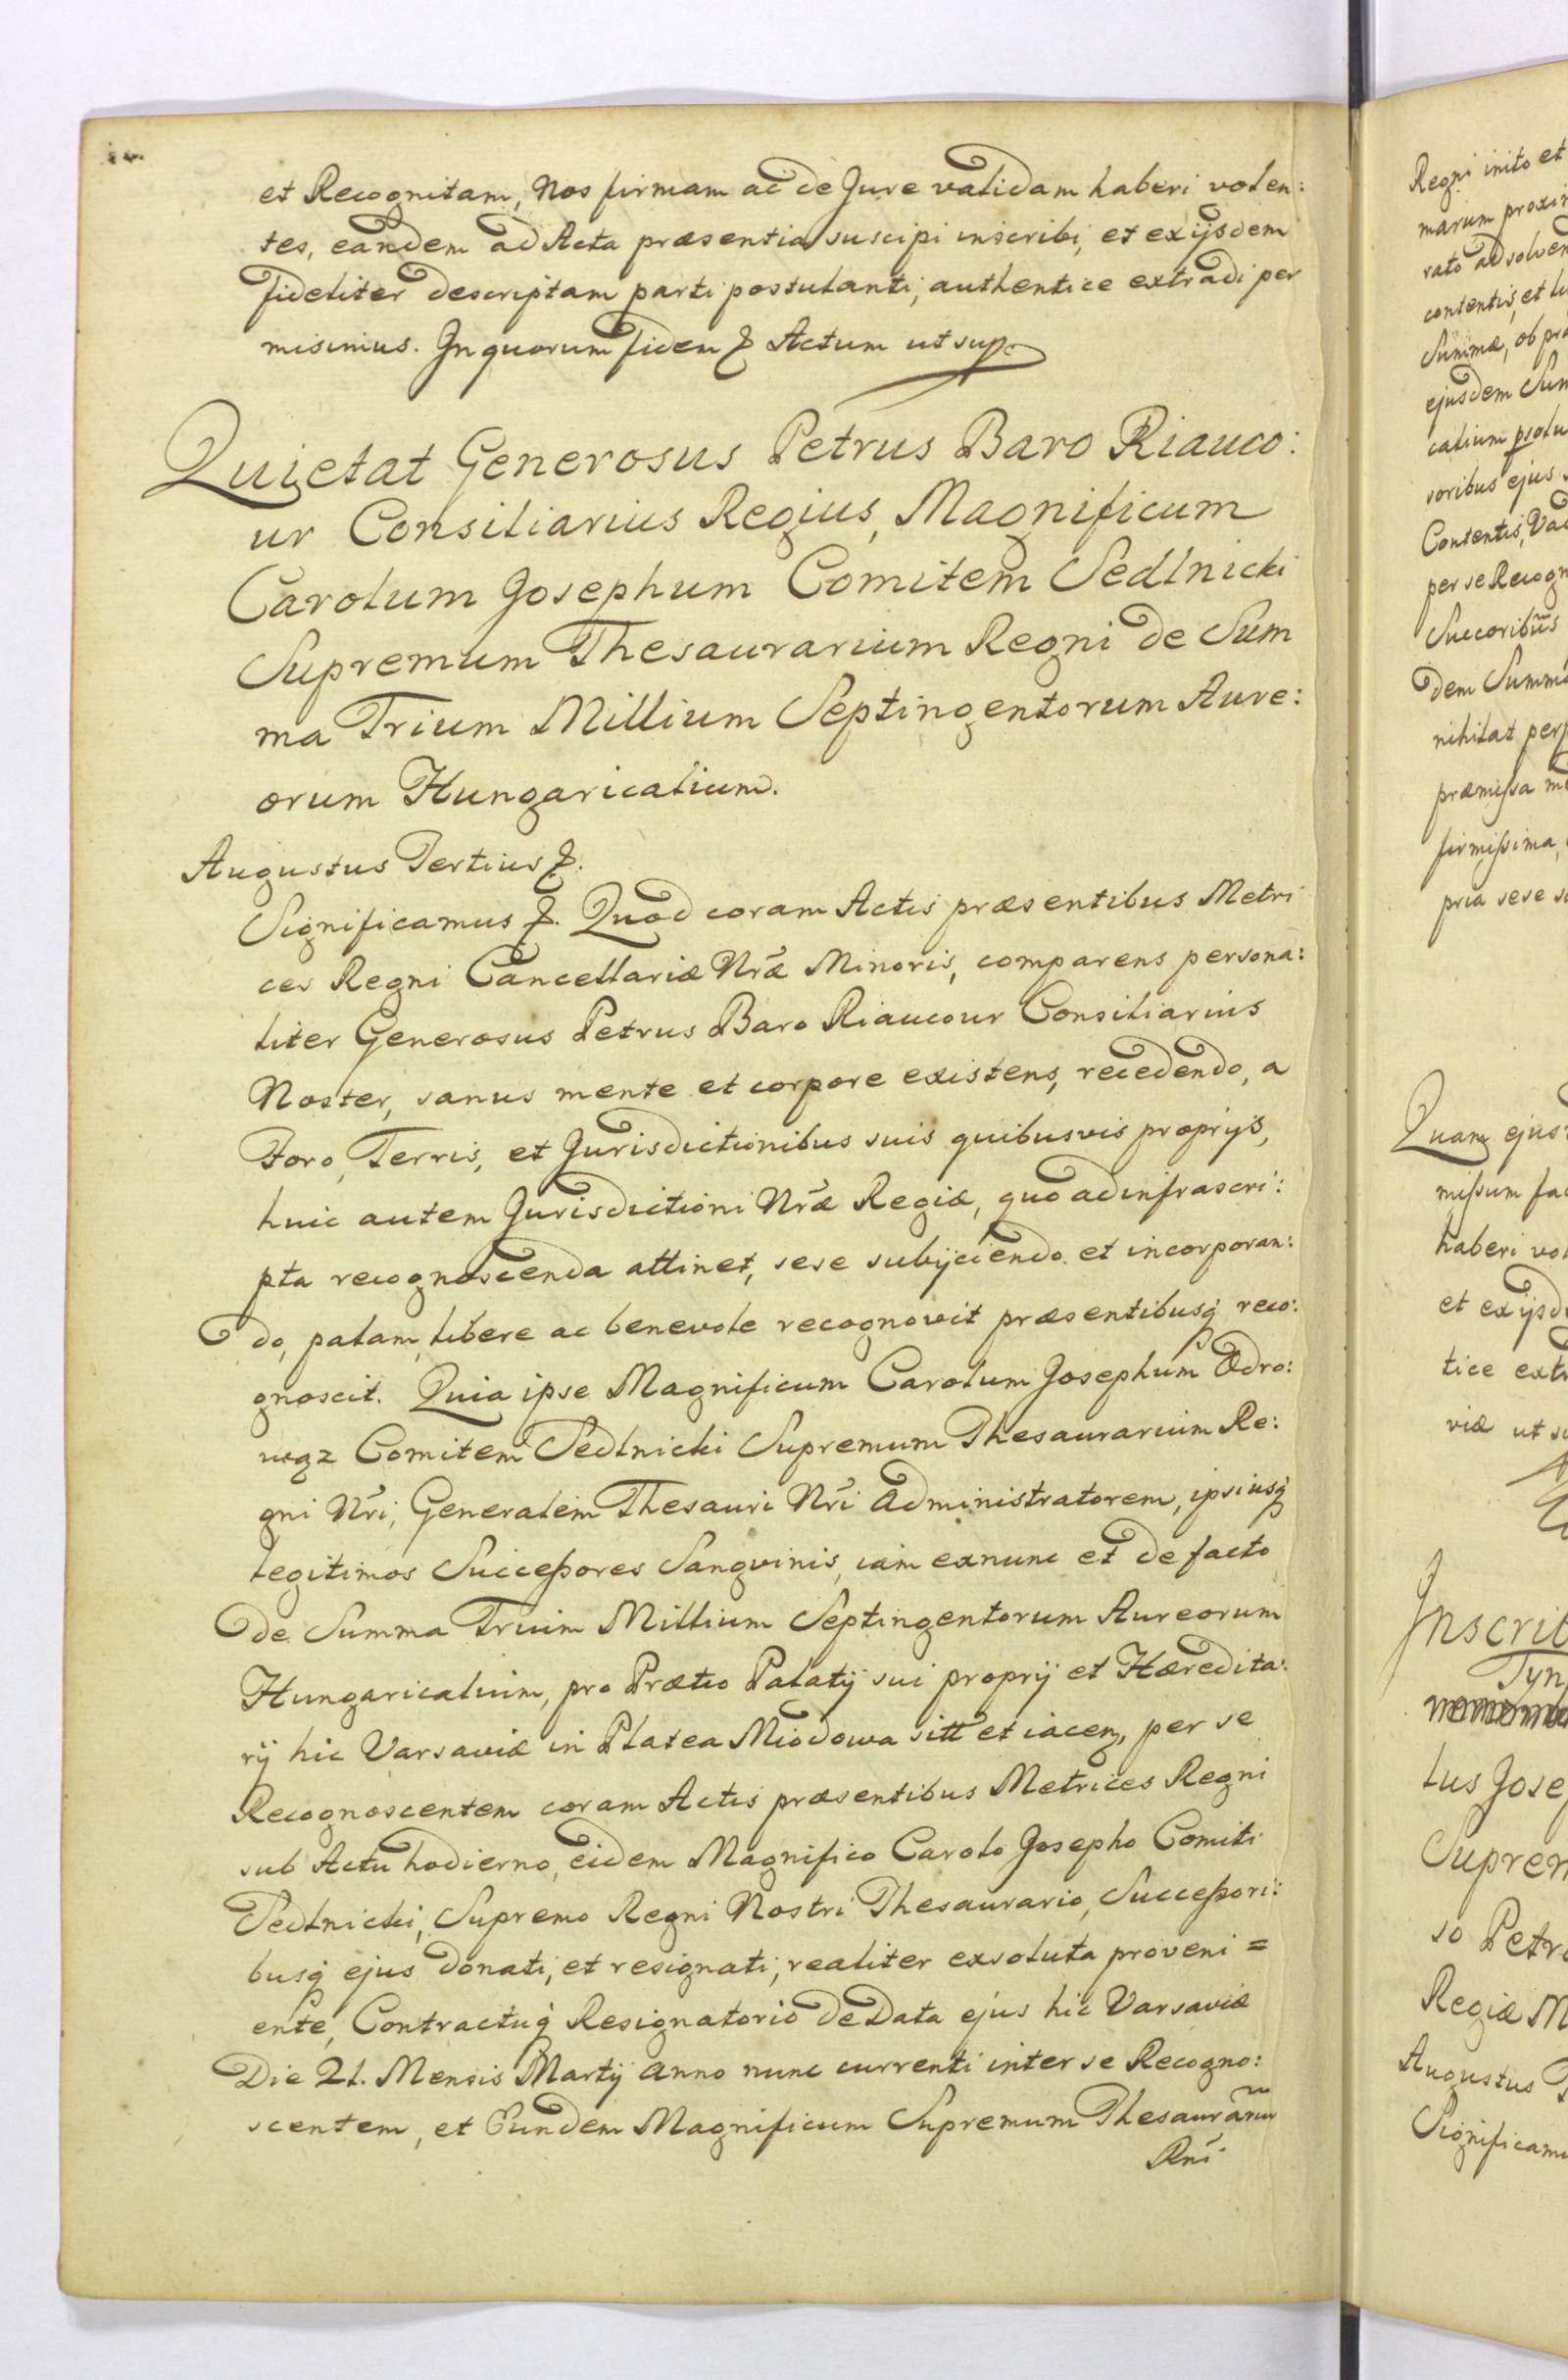 et Recognitam, Nos firmam ac de Jure validam haberi volen:
tes, eandem ad Acta præsentia suscipi inscribi, et exijsdem
fideliter descriptam parti postulanti, authentice extradi per
misimus. In quorum fidem &. Actum ut sup.
Quietat Generosus Petrus Baro Riauco:
ur Consiliarius Regius, Magnificum
Carolum Josephum Comitem Sedlnicki
Supremum Thesaurarium Regni de Sum
ma Trium Millium Septingentorum Aure:
orum Hungaricalium.
Augustus Tertius &.
Significamus &. Quod coram Actis præsentibus Metri
ces Regni Cancellariæ Nræ Minoris, comparens persona:
liter Generosus Petrus Baro Riaucour Consiliarius
Noster, sanus mente et corpore existens, recedendo, a
Foro, Terris, et Jurisdictionibus suis quibusvis proprijs,
huic autem Jurisdictioni Nræ Regiæ, quo ad infrascri:
pta recognoscenda attinet, sese subijciendo et incorporan:
do, palam, libere ac benevole recognovit præsentibusq reco:
gnoscit. Quia ipse Magnificum Carolum Josephum Odro:
wąz Comitem Sedlnicki Supremum Thesaurarium Re:
gni Nri, Generalem Thesauri Nri Administratorem, ipsiusq
legitimos Successores Sangvinis, iam exnunc et de facto
de Summa Trium Millium Septingentorum Aureorum
Hungaricalium, pro Prætio Palatij sui proprij et Hæredita:
rij hic Varsaviæ in Platea Miodowa sitt et iacen, per se
Recognoscentem coram Actis præsentibus Metrices Regni
sub Actu hodierno, eidem Magnifico Carolo Josepho Comiti
Sedlnicki, Supremo Regni Nostri Thesaurario, Successori:
busq ejus donati, et resignati, realiter exsoluta proveni=
ente, Contractuq Resignatorio de Data ejus hic Varsaviæ
Die 21. Mensis Martij Anno nunc currenti inter se Recogno:
scentem, et Eundem Magnificum Supremum Thesaurariu
Rni
Regni inito et
marum proxi
rato adsolven
contentis, et
Summæ, ob
ejusdem Sum
calium
soribus ejus
Contentis,
per se Recogn
Succoribus
dem Summa
nihilat
præmissa
firmissima,
pria sese
Quam ejus
missum
haberi vol
et exijsd
tice extr
viæ ut
Inscrib
Tyn
lus Jose
Suprem
so Petro
Regiæ M
Augustus T
Significamu